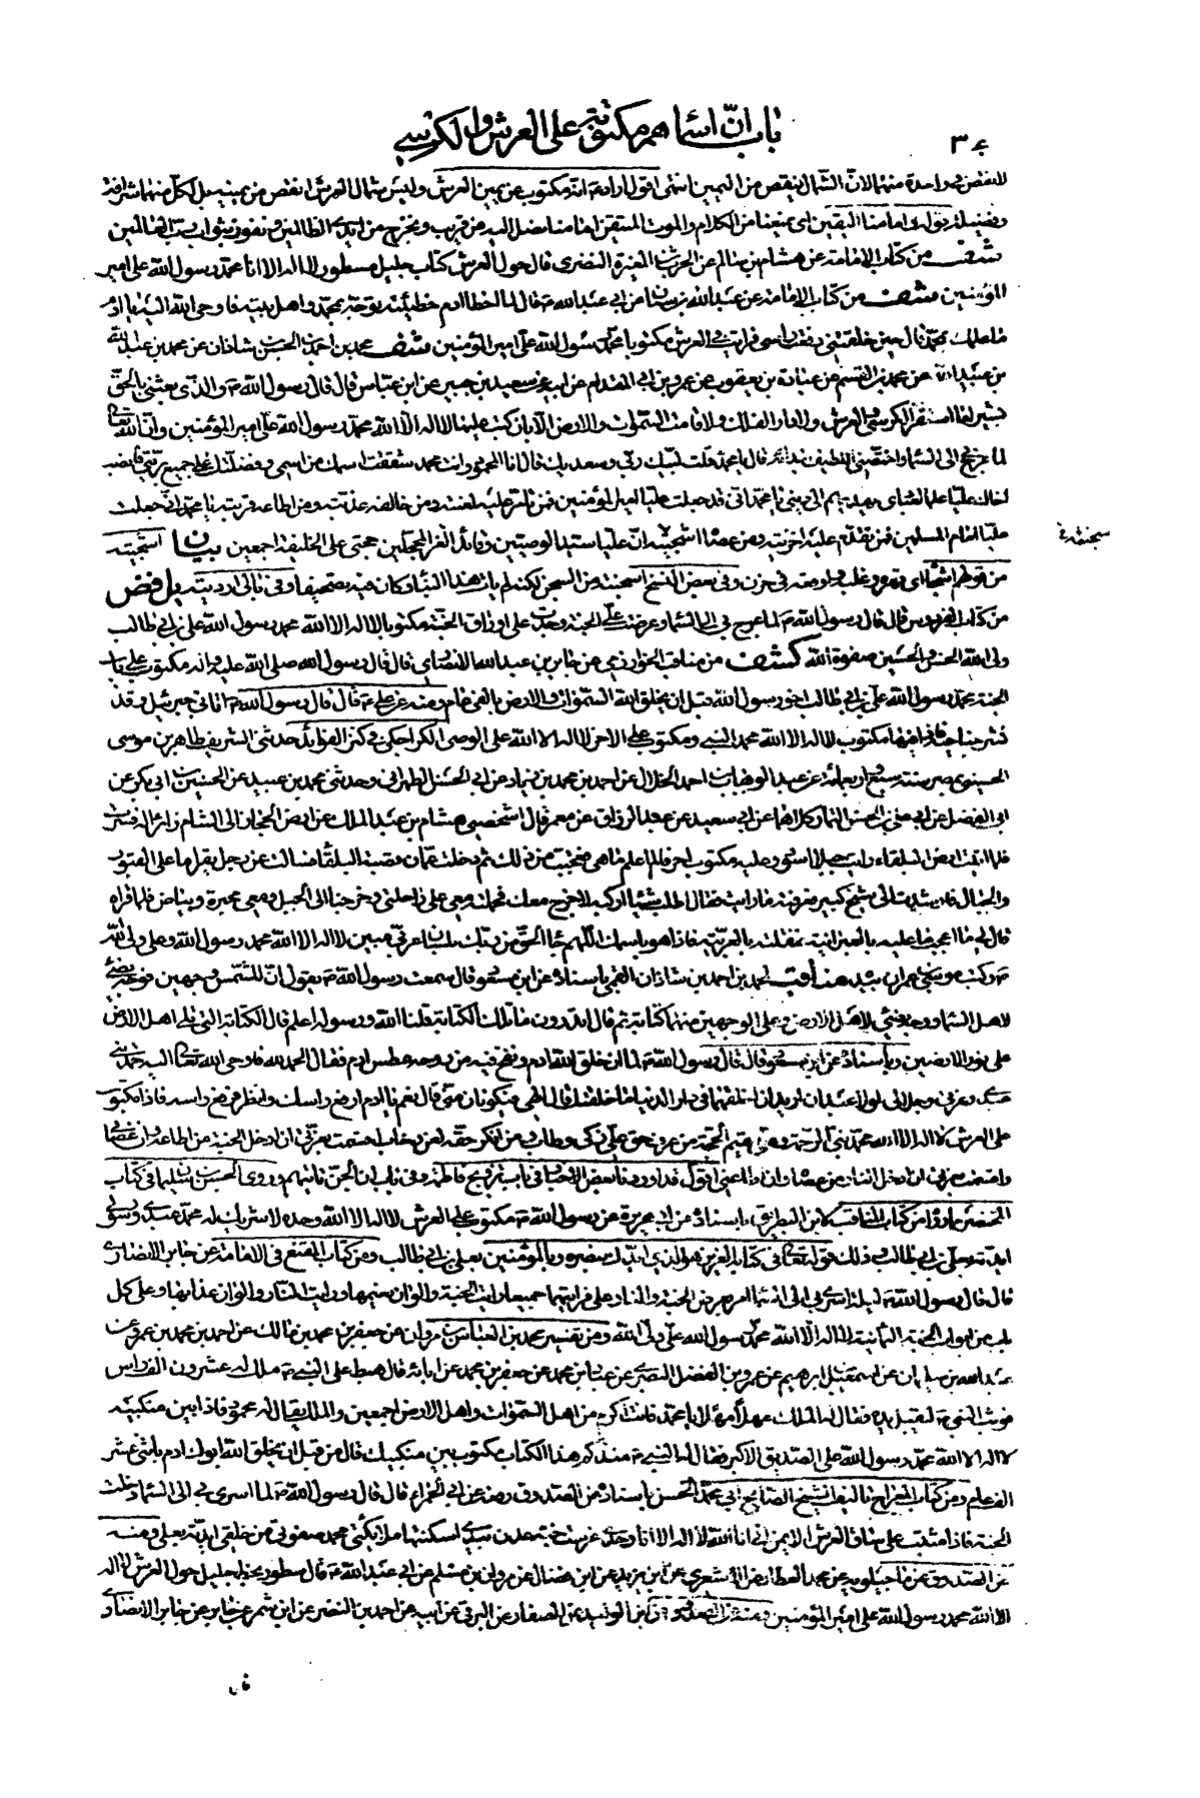 باب ان اسماءهم مكتوبة على العرش والكرسي
لا لنقص في واحدة منهما لان الشمال ينقص من اليمين انتهى اقول اراد انه مكتوب عن يمين العرش وليس شمال العرش انقص من يمينه بل لكل منهما شرافة
من كتاب الامامة عن هشام بن سالم عن الحرث بن المغيرة النضري قال حول العرش كتاب جليل مسطور لا اله الا انا محمد رسول الله علي امير
المؤمنين شف من كتاب الامامة عن عبد الله بن سنان عن ابي عبد الله ع قال لما اخطا ادم خطيئته توجه بمحمد واهل بيته فاوحى الله اليه يا ادم
ما علمك بمحمد قال حين خلقتني رفعت راسي فرايت في العرش مكتوبا محمد رسول الله علي امير المؤمنين شف محمد بن احمد بن الحسن بن شاذان عن محمد بن عبد الله
بن عبيد الله عن محمد بن القسم عن عباد بن يعقوب عن عمرو بن ابي المقدام عن ابيه عن سعيد بن جبير عن ابن عباس قال قال رسول الله ص والذي بعثني بالحق
بشيرا ما استقر الكرسي والعرش ولا دار الفلك ولا قامت السموات والارض الا بان كتب عليها لا اله الا الله محمد رسول الله علي امير المؤمنين وان الله تعالى
لما عرج بي الى السماء واختصني اللطيف بندائه قال يا محمد قلت لبيك ربي وسعديك قال انا المحمود وانت محمد شققت اسمك من اسمي وفضلتك على جميع بريتي فانصب
اخاك عليا علما لعبادي يهديهم الى ديني يا محمد اني قد جعلت عليا امير المؤمنين فمن تامر عليه لعنته ومن خالفه عذبته ومن اطاعه قربته يا محمد اني جعلت
عليا امام المسلمين فمن تقدم عليه اخزيته ومن عصاه استجنته ان عليا سيد الوصيين وقائد الغر المحجلين وحجتي على الخليقة اجمعين بيان استجنته
من كتاب الفردوس قال قال رسول الله ص لما عرج بي الى السماء وعرضت علي الجنة وجدت على اوراق الجنة مكتوبا لا اله الا الله محمد رسول الله علي بن ابي طالب
ولي الله الحسن والحسين صفوة الله كشف من مناقب الخوارزمي عن جابر بن عبد الله الانصاري قال قال رسول الله صلى الله عليه واله مكتوب على باب
الجنة محمد رسول الله علي بن ابي طالب اخو رسول الله قبل ان يخلق الله السموات والارض بالفي عام ومنه عن علي ع قال قال رسول الله ص اتاني جبرئيل وقد
نشر جناحيه فاذا فيها مكتوب لا اله الا الله محمد النبي ومكتوب على الاخر لا اله الا الله علي الوصي الكراجكي في كنز الفوائد حدثني الشريف طاهر بن موسى
الحسيني بمصر سنة سبع واربعمائة عن عبد الوهاب بن احمد الخلال عن احمد بن محمد بن زياد عن ابي الحسن الطهراني وحدثني محمد بن عبيد عن الحسين بن ابي بكر عن
ابي الفضل عن ابي علي بن الحسن التمار كلاهما عن ابي سعيد عن عبد الرزاق عن معمر قال اشخصني هشام بن عبد الملك عن ارض الحجاز الى الشام زائرا له فسرت
فلما اتيت ارض البلقاء رايت جبلا اسود وعليه مكتوب احرفا لم اعلم ما هي فعجبت من ذلك ثم دخلت عمان قصبة البلقاء فسالت عن رجل يقرا ما على القبور
والجبال فارشدت الى شيخ كبير فعرفته ما رايت فقال اطلب شيئا اركبه لاخرج معك فحملته معي على راحلتي وخرجنا الى الجبل ومعي محبرة وبياض فلما قراه
قال لي ما اعجب ما عليه بالعبرانية فنقلته بالعربية فاذا هو باسمك اللهم جاء الحق من ربك بلسان عربي مبين لا اله الا الله محمد رسول الله وعلي ولي الله
ص وكتب موسى بن عمران بيده مناقب محمد بن احمد بن شاذان القمي باسناده عن ابن مسعود قال سمعت رسول الله ص يقول ان للشمس وجهين فوجه يضيء
لاهل السماء ووجه يضيء لاهل الارض وعلى الوجهين منهما كتابة ثم قال اتدرون ما تلك الكتابة قلنا الله ورسوله اعلم قال الكتابة التي تلي اهل الارض
علي نور الارضين وباسناده عن ابن مسعود قال قال رسول الله ص لما ان خلق الله ادم ونفخ فيه من روحه عطس ادم فقال الحمد لله فاوحى الله تعالى اليه حمدني
عبدي وعزتي وجلالي لولا عبدان اريد ان اخلقهما في دار الدنيا ما خلقتك قال الهي فيكونان مني قال نعم يا ادم ارفع راسك وانظر فرفع راسه فاذا مكتوب
على العرش لا اله الا الله محمد نبي الرحمة وعلي مقيم الحجة من عرف حق علي زكى وطاب ومن انكر حقه لعن وخاب اقسمت بعزتي ان ادخل الجنة من اطاعه وان عصاني
واقسمت بعزتي ان ادخل النار من عصاه وان اطاعني اقول قد اوردنا بعض الاخبار في باب تزويج فاطمة وفي باب ان الجن تاتيهم وروى الحسن بن سليمان في كتاب
المحتضر مما رواه من كتاب المناقب لابن البطريق باسناده عن ابي هريرة عن رسول الله ص مكتوب على العرش لا اله الا الله وحده لا شريك له محمد عبدي ورسولي
ايدته بعلي بن ابي طالب وذلك قوله تعالى في كتابه العزيز هو الذي ايدك بنصره وبالمؤمنين بعلي بن ابي طالب ومن كتاب المقنع في الامامة عن جابر الانصاري
قال قال رسول الله ص ليلة اسري بي الى السماء امر بعرض الجنة والنار علي فرايتهما جميعا رايت الجنة والوان نعيمها ورايت النار والوان عذابها وعلى كل
باب من ابواب الجنة الثمانية لا اله الا الله محمد رسول الله علي ولي الله ومن تفسير محمد بن العباس بن مروان عن جعفر بن محمد بن مالك عن احمد بن محمد بن عمرو عن
فوثب النبي ص ليقبل يده فقال له الملك مهلا مهلا يا محمد فانت اكرم من اهل السموات واهل الارض اجمعين والملك يقال له محمود فاذا بين منكبيه
لا اله الا الله محمد رسول الله علي الصديق الاكبر فقال له النبي ص منذ كم هذا الكتاب مكتوب بين منكبيك قال من قبل ان يخلق الله ابوك ادم باثني عشر
الف عام ومن كتاب المعراج تاليف الشيخ الصالح ابي محمد الحسن باسناده عن الصدوق رفعه عن ابي الحمراء قال قال رسول الله ص لما اسري بي الى السماء دخلت
الجنة فاذا مثبت على ساق العرش الايمن اني انا الله لا اله الا انا وحدي غرست جنة عدن بيدي اسكنتها ملائكتي محمد صفوتي من خلقي ايدته بعلي ومنه
عن الصدوق عن ماجيلويه عن محمد العطار عن الاشعري عن ابن يزيد عن ابن فضال عن مروان بن مسلم عن ابي عبد الله ع قال مسطور بخط جليل حول العرش لا اله
الا الله محمد رسول الله علي امير المؤمنين ومنه عن الصدوق عن ابن الوليد عن الصفار عن البرقي عن ابيه عن احمد بن النضر عن ابن شمر عن جابر عن جابر الانصاري